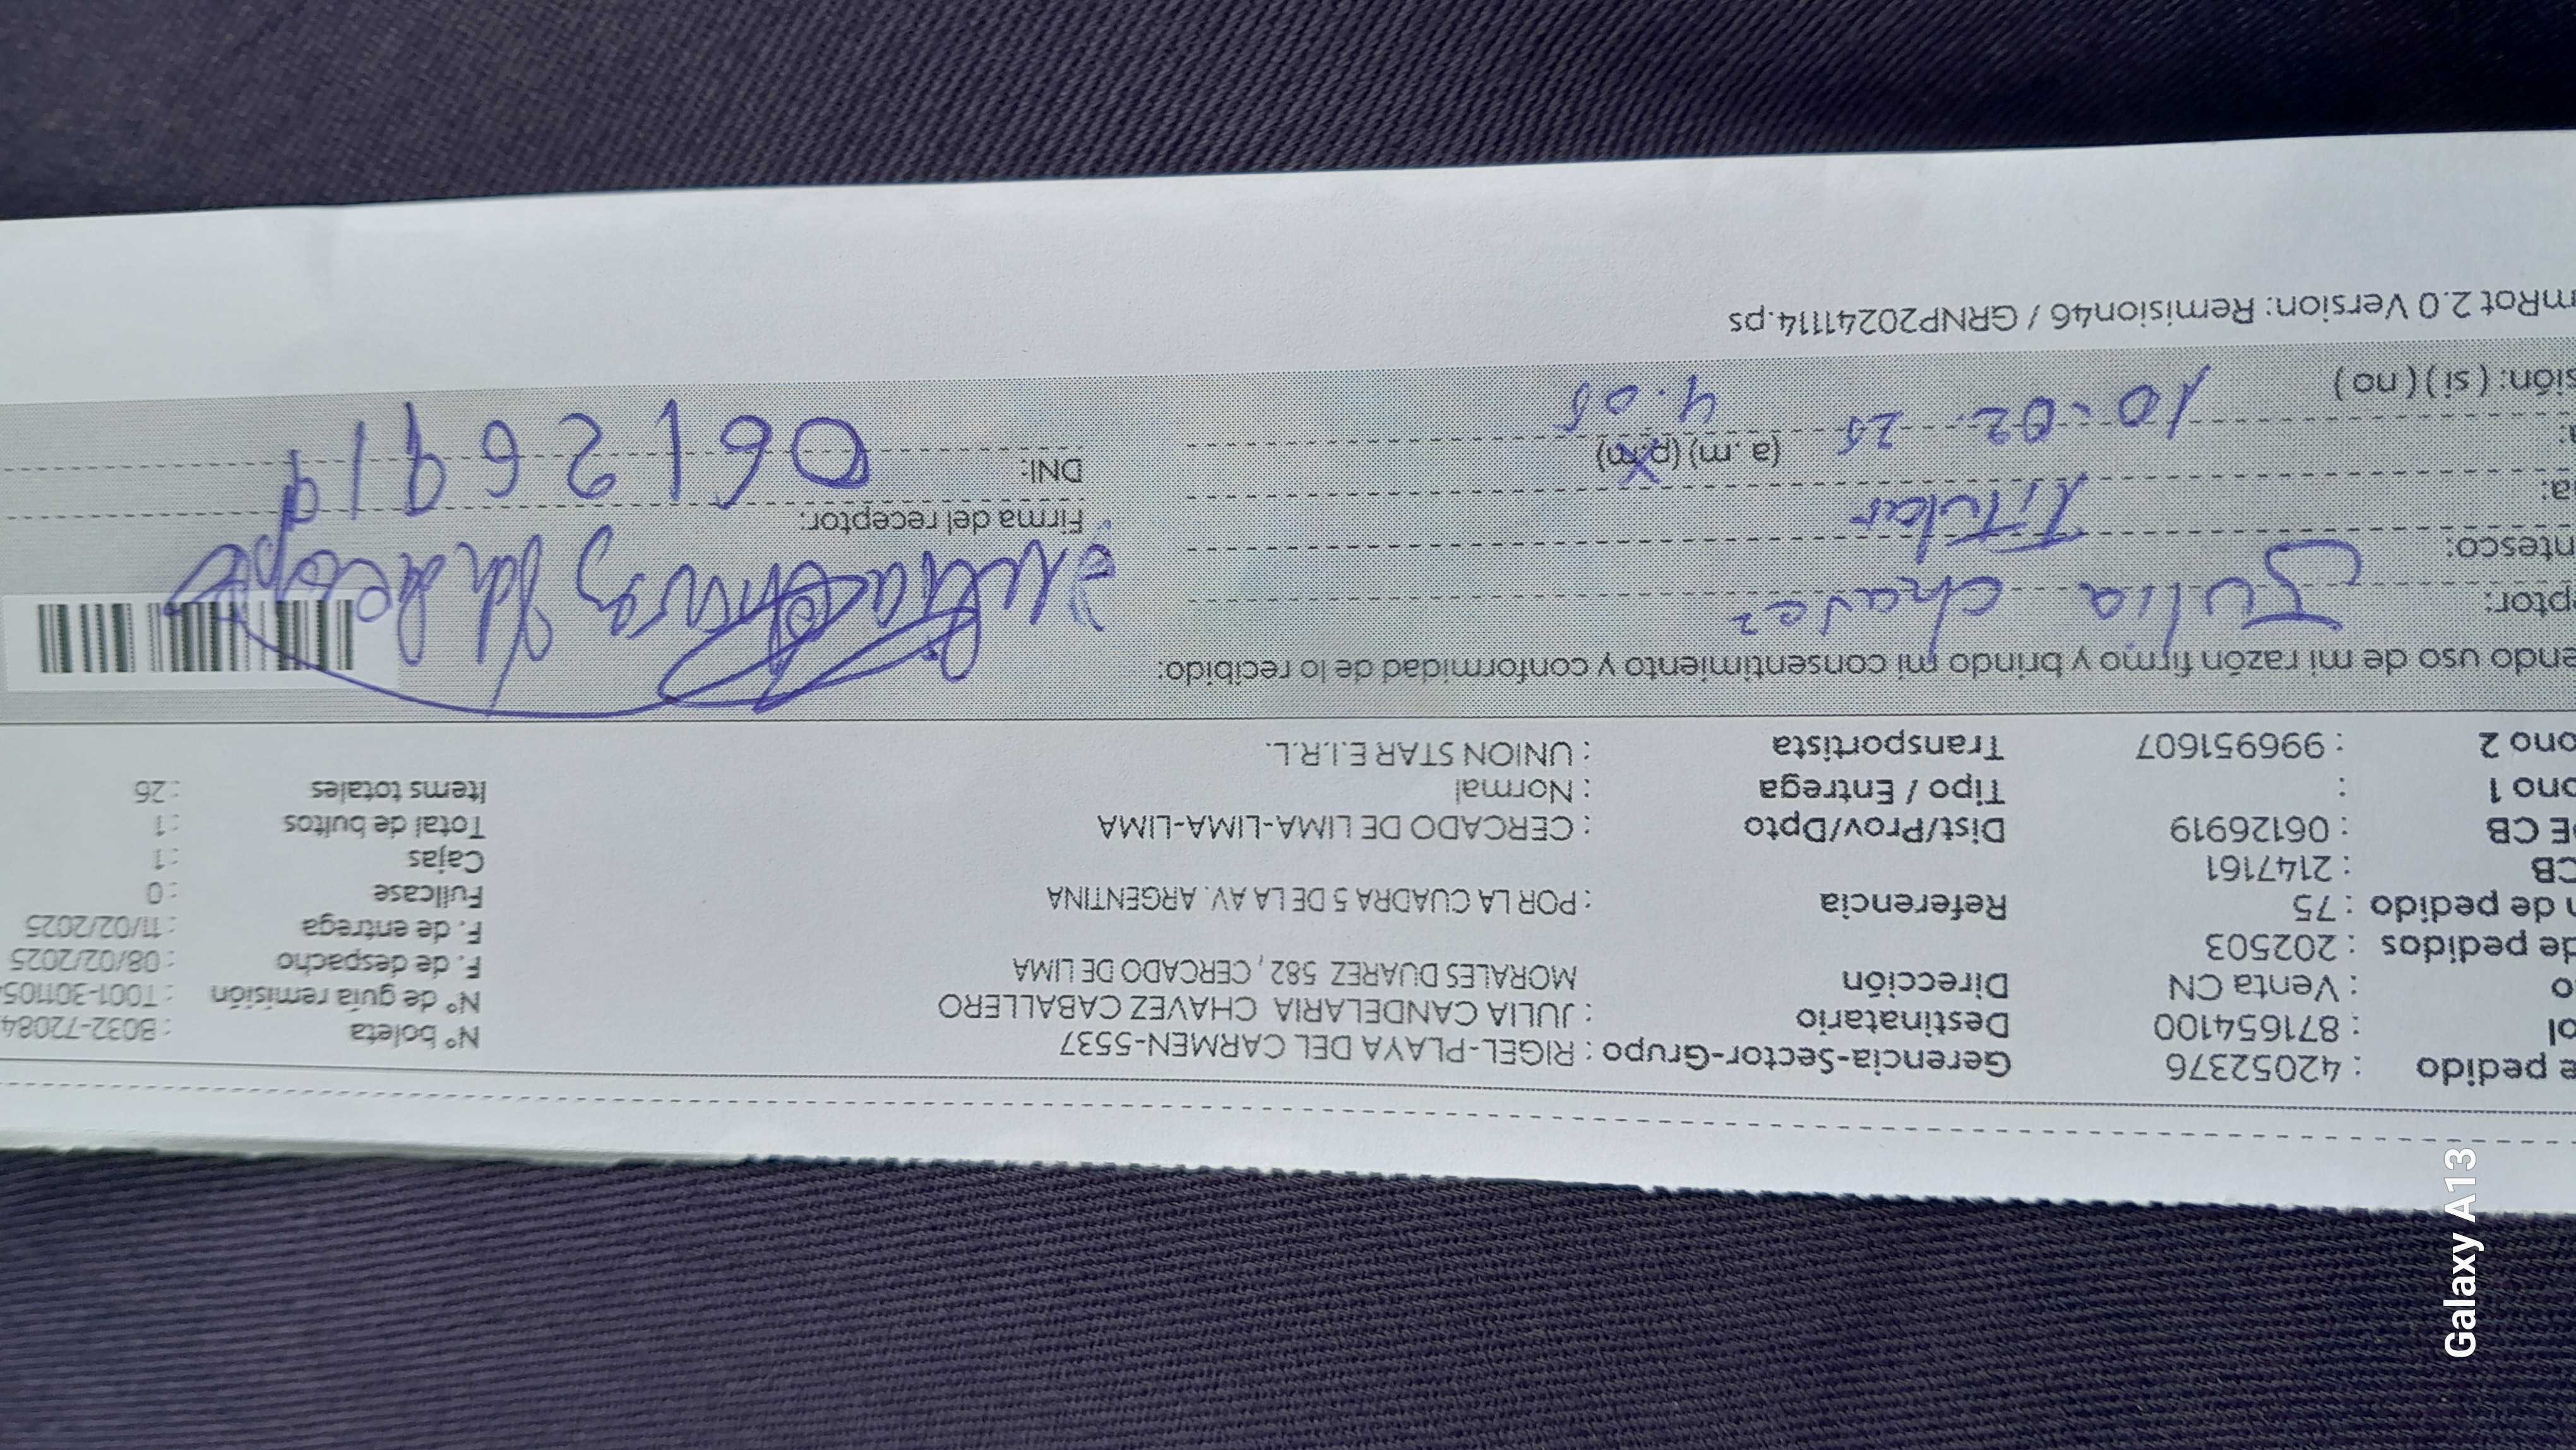 e pedido : 42052376 Gerencia-Sector-Grupo : RIGEL-PLAYA DEL CARMEN-5537 N° boleta : B032-72084
ol : 871654100 Destinatario : JULIA CANDELARIA CHAVEZ CABALLERO N° de guía remisión : T001-301105
o : Venta CN Dirección MORALES DUAREZ 582, CERCADO DE LIMA F. de despacho : 08/02/2025
de pedidos : 202503 F. de entrega : 11/02/2025
n de pedido : 75 Referencia : POR LA CUADRA 5 DE LA AV. ARGENTINA Fullcase : 0
CB : 2147161 Cajas : 1
E CB : 06126919 Dist/Prov/Dpto : CERCADO DE LIMA-LIMA-LIMA Total de bultos : 1
ono 1 : Tipo / Entrega : Normal Items totales : 26
ono 2 : 996951607 Transportista : UNION STAR E.I.R.L.
endo uso de mi razón firmo y brindo mi consentimiento y conformidad de lo recibido:
eptor: Julia chavez
ntesco: Titular Firma del receptor:
a: 10-02-25 (a.m) (p.m) 4.05 DNI: 06126919
sión: ( si ) ( no )
mRot 2.0 Version: Remision46 / GRNP20241114.ps
Galaxy A13